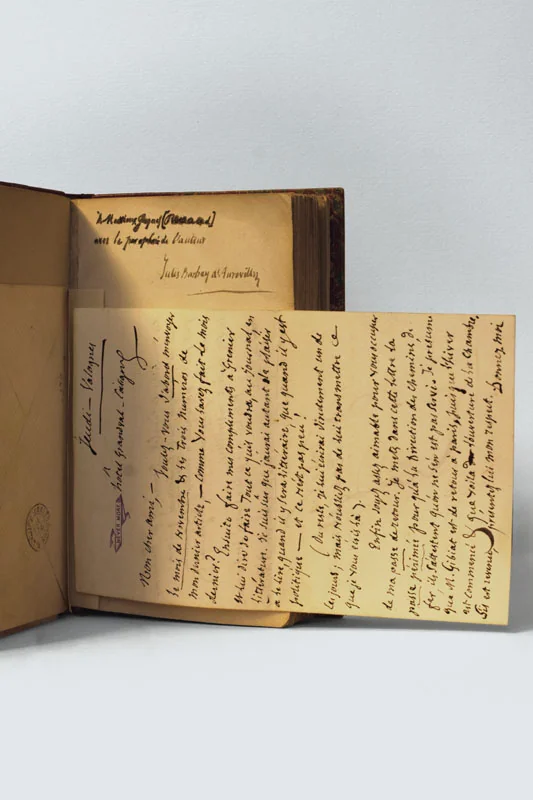 A Madame
avec la
de l'auteur
Jules Barbey d'Aurevilly
Jeudi — Valognes
hôtel Grandval-Caligny
NEVER MORE
Mon cher ami, —
Voulez-vous d'abord m'envoyer
le mois de novembre & les Trois Numéros de
mon dernier article, — comme vous l'avez fait le mois
dernier?
Ensuite faire mes compliments à Grenier
et lui dire de faire Tout ce qu'il voudra, au journal, en
littérature. Je lui lue que j'aurai autant de plaisir
à le lire, quand il y sera littéraire que quand il y est
politique — et ce n'est pas peu!
(Du reste, je lui écrirai directement un de
ces jours; mais n'oubliez pas de lui transmettre ce
que je vous écris là).
Enfin soyez assez aimable pour vous occuper
de ma passe de retour. Je mets dans cette lettre la
passe périmée pour qu'à la Direction des chemins de
fer, ils sachent qu'on ne s'en est pas servi. Je présume
que M. Gibiat est de retour à paris, puisque l'hiver
est commencé & que voilà l'ouverture de la chambre.
S'il est revenu, présentez lui mon respect. Donnez moi